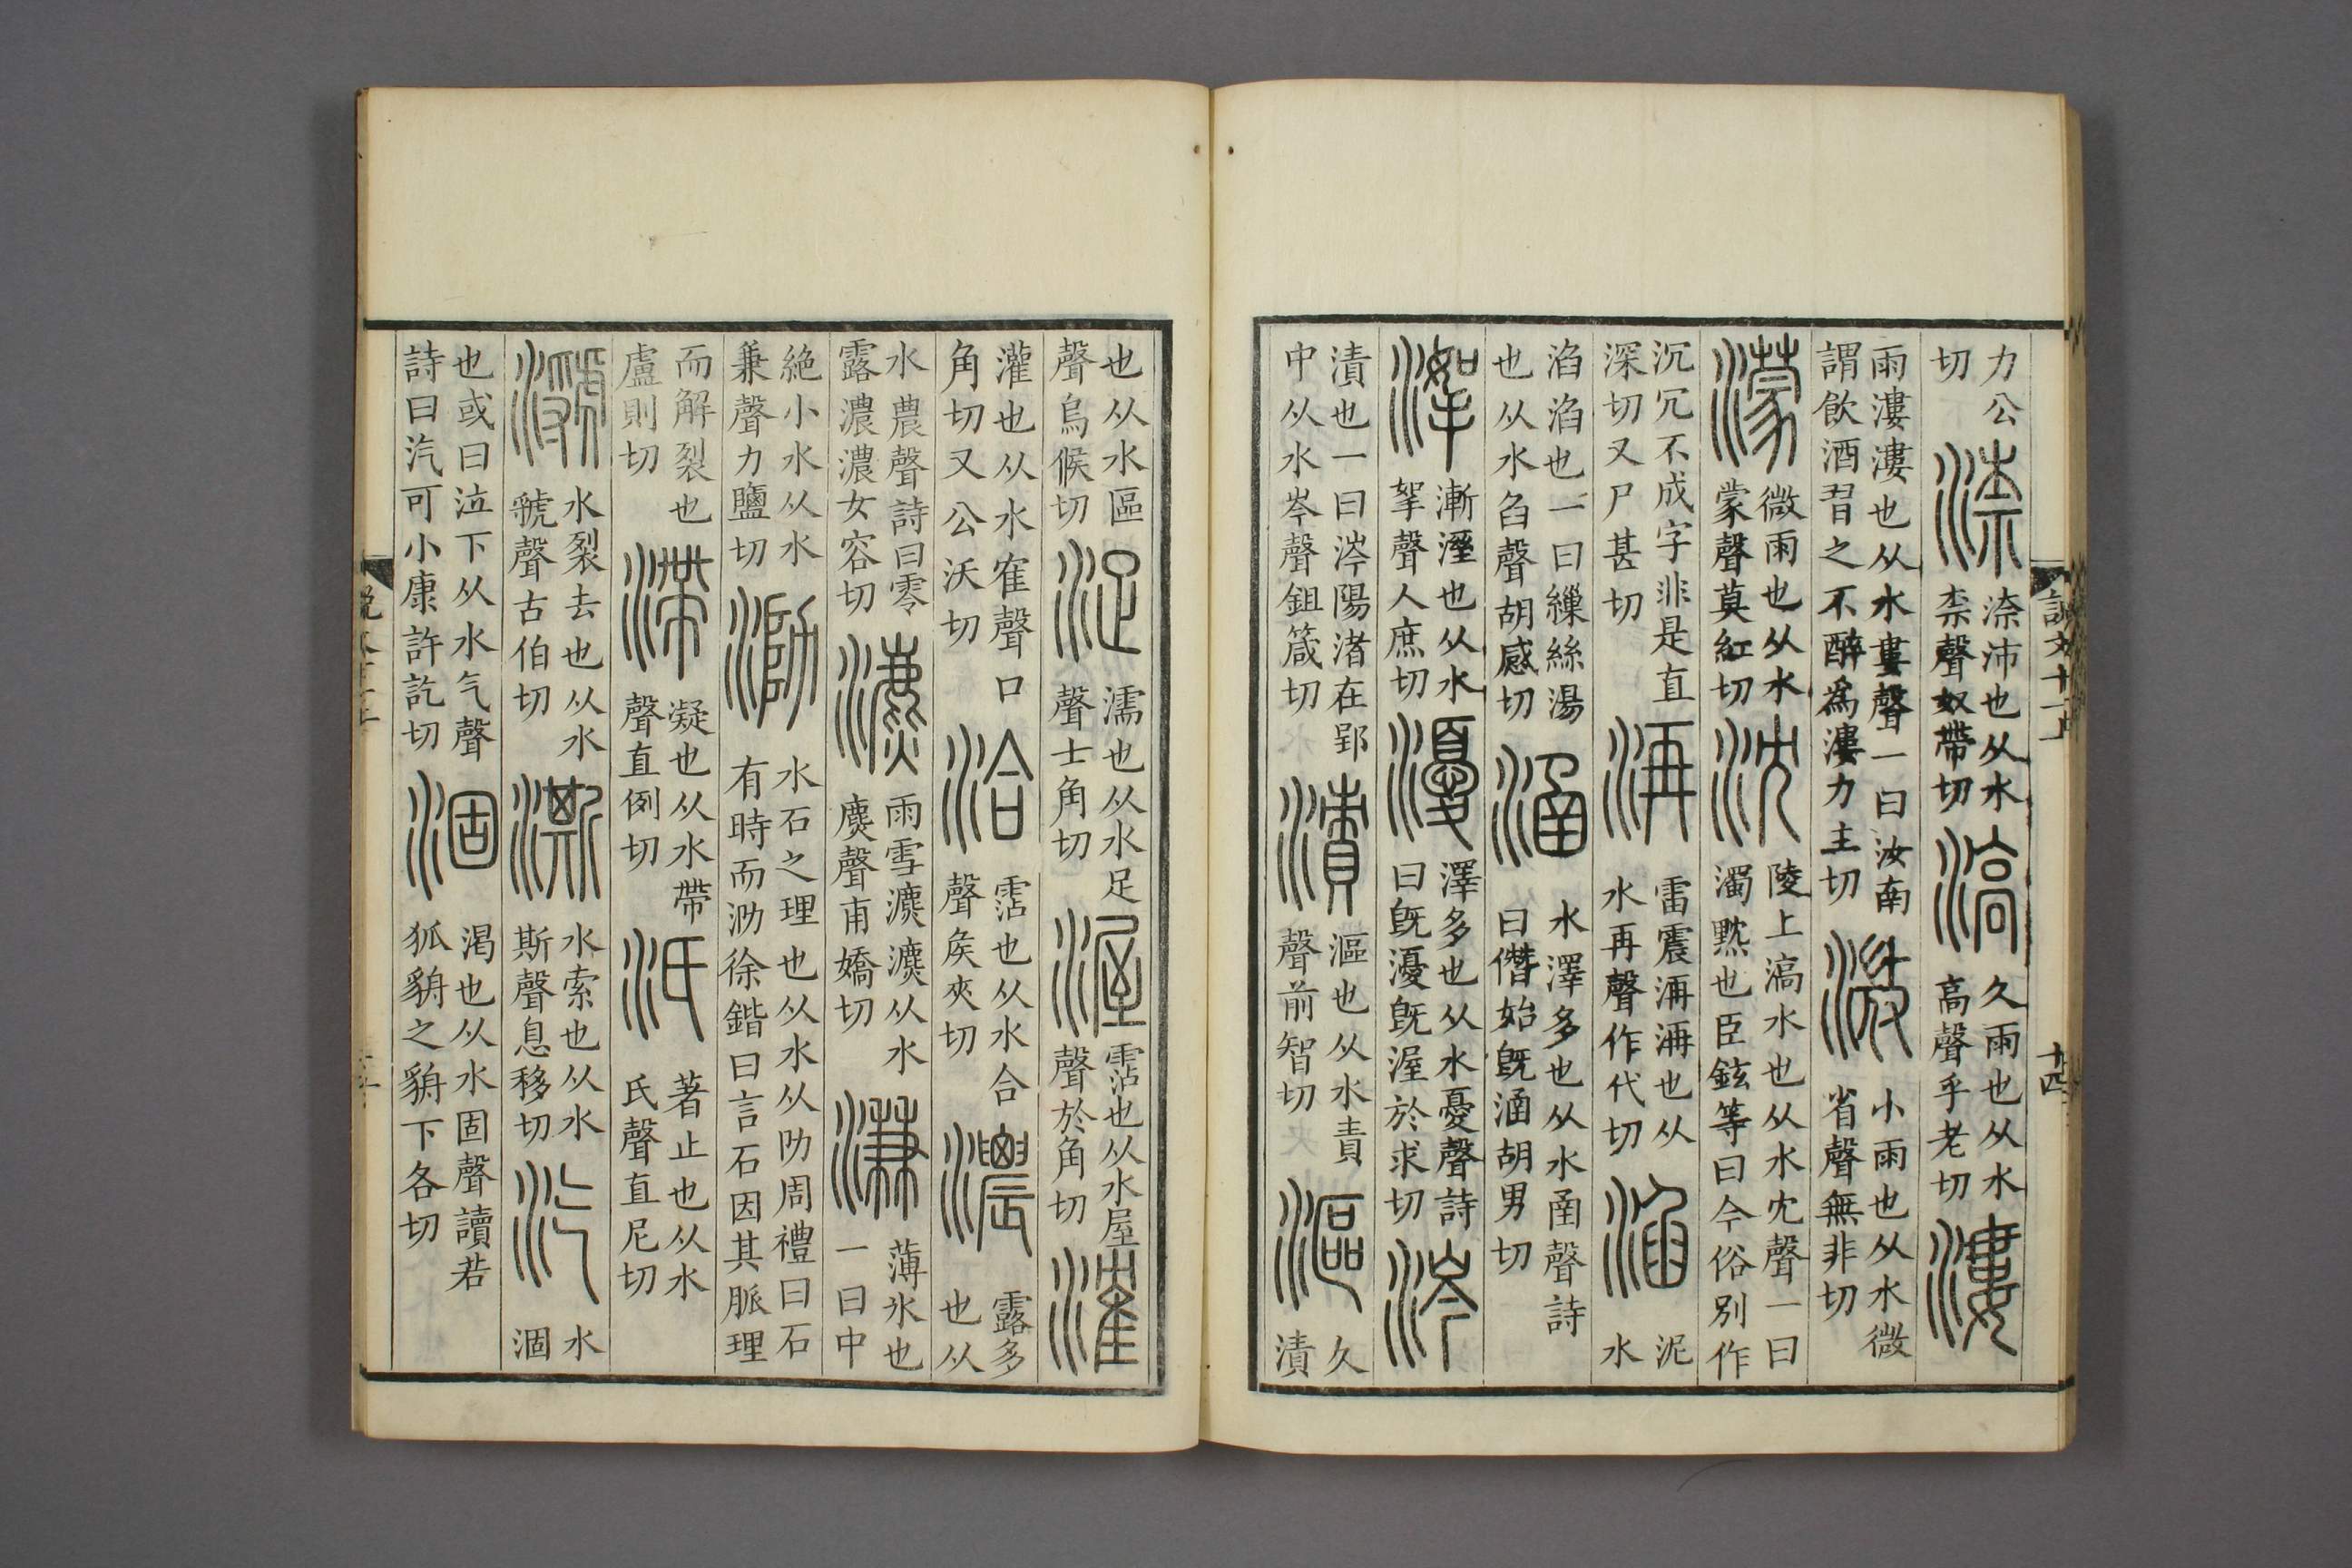 力公切渿渿沛也从水柰聲奴帶切滈久雨也从水高聲乎老切漊
雨漊漊也从水婁聲一曰汝南謂飲酒習之不醉為漊力主切溦小雨也从水微省聲無非切
濛微雨也从水蒙聲莫紅切沈陵上滈水也从水冘聲一曰濁黕也臣鉉等曰今俗別作
沉冗不成字非是直深切又尸甚切洅雷震洅洅也从水再聲作代切淊泥水
淊淊也一曰繅絲湯也从水臽聲胡感切涵水澤多也从水圅聲詩曰僭始旣涵胡男切
漸溼也从水挐聲人庶切瀀澤多也从水憂聲詩曰旣瀀旣渥於求切涔
漬也一曰涔陽渚在郢中从水岑聲鉏箴切漬漚也从水責聲前智切漚久漬
說文十一上
十四
也从水區聲烏候切浞濡也从水足聲士角切渥霑也从水屋聲於角切㴶
灌也从水隺聲口角切又公沃切洽霑也从水合聲矦夾切濃露多也从
水農聲詩曰零露濃濃女容切瀌雨雪瀌瀌从水麃聲甫嬌切溓薄水也一曰中
絶小水从水兼聲力鹽切泐水石之理也从水从阞周禮曰石有時而泐徐鍇曰言石因其脈理
而解裂也盧則切滯凝也从水帶聲直例切汦著止也从水氏聲直尼切
㶁水裂去也从水虢聲古伯切澌水索也从水斯聲息移切汽水涸
也或曰泣下从水气聲詩曰汽可小康許訖切涸渴也从水固聲讀若狐貈之貈下各切